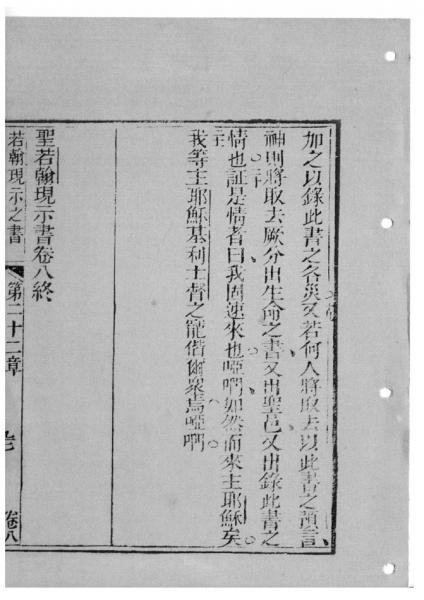 加之以錄此書之各災又若何人將取去以此書之預言
神則將取去厥分出生命之書又出聖邑又出錄此書之
情也証是情者曰我固速來也啞啊如然而來主耶穌矣
我等主耶穌基利士督之寵偕爾衆焉啞啊
聖若翰現示書卷八終
若翰現示之書 第二十二章 卷八